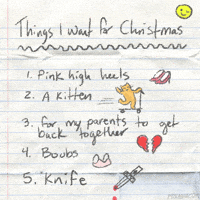 Things I want for Christmas
1. Pink high heels
2. A Kitten
3. for my parents to get
back together
4. Boobs
5. Knife